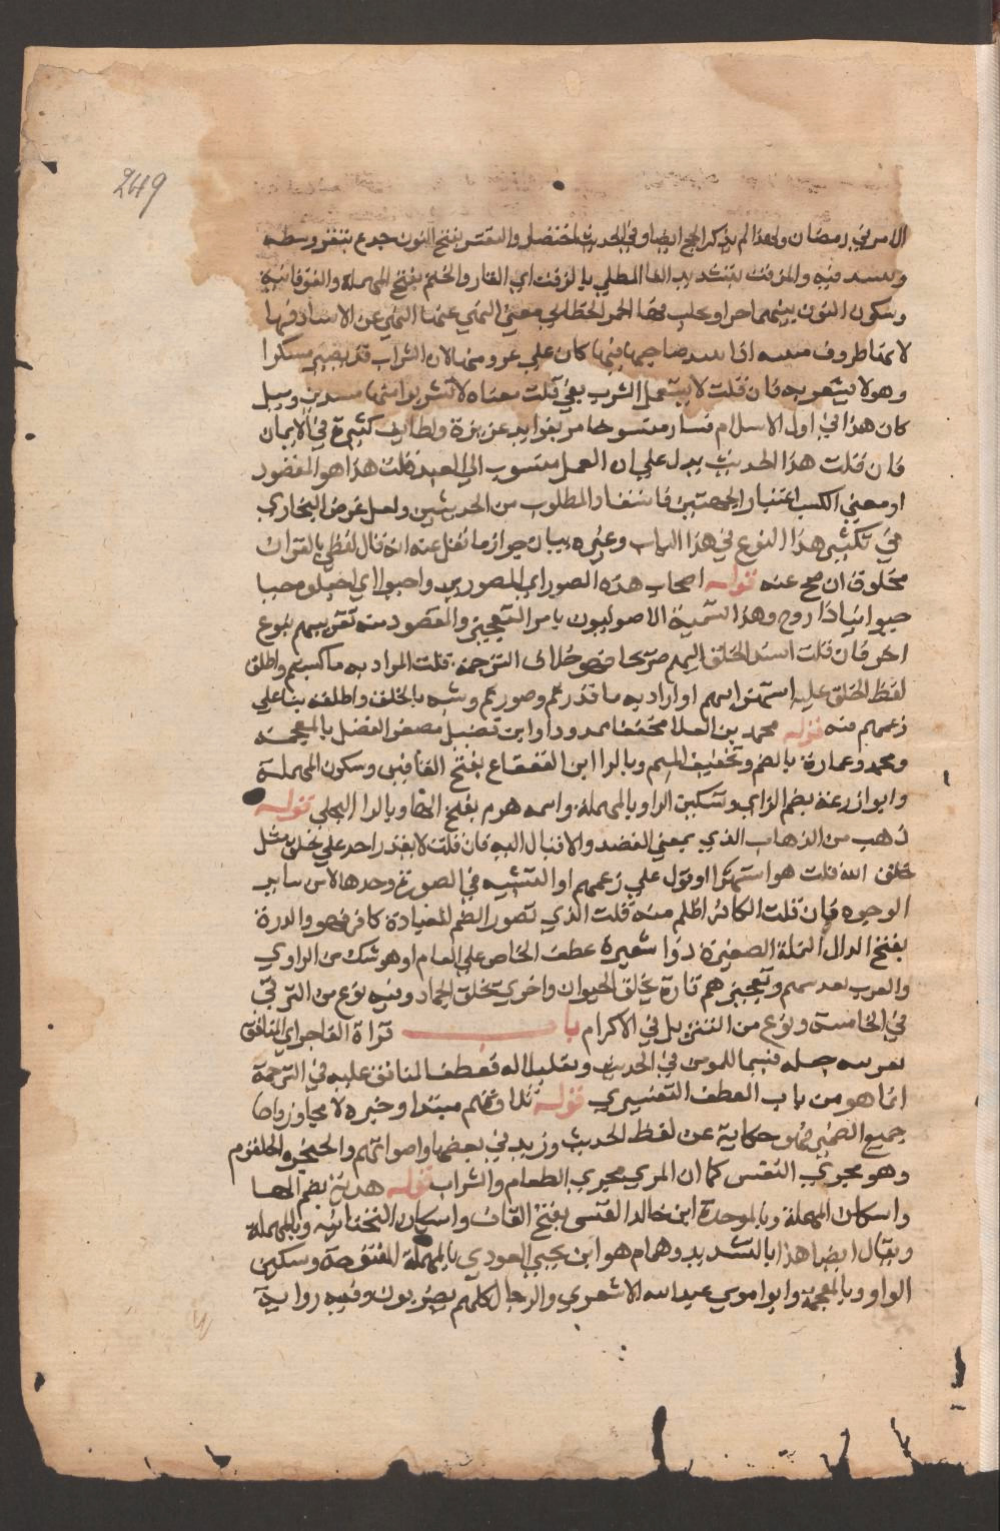 249
الامر في رمضان ولهذا لم يذكر الحج ايضا وفي الحديث اختصار والنقير بفتح النون جذع ينقر وسطه
وينبذ فيه والمزفت بتشديد الفا المطلي بالزفت اي القار والحنتم بفتح المهملة والفوقانية
وسكون النون بينهما جرار يجلب فيها الخمر الخطابي معنى النهي عنها النهي عن الانتباذ فيها
لانها ظروف متينه اذا انتبذ صاحبها فيها كان علي غرر منها لان الشراب قد يصير مسكرا
وهو لا يشعر به فان قلت لا يستعمل الشرب بفي قلت معناه لا تشربوا منها منتبذين وقيل
كان هذا في اول الاسلام فصار منسوخا مر بفوايد عزيزة ولطايف كثيرة في الايمان
فان قلت هذا الحديث يدل علي ان العمل منسوب الي العبد قلت هذا هو المقصود
او معني الكسب اعتبار الجهتين فاستفاد المطلوب من الحديثين ولعل غرض البخاري
في تكثير هذا النوع في هذا الباب وغيره بيان جواز ما نقل عنه انه قال لفظي بالقران
مخلوق ان صح عنه قوله اصحاب هذه الصور اي المصورين واحيوا اي اجعلوه حيا
حيوانيا ذا روح وهذا التسمية الاصوليون بامر التعجيز والمقصود منه تعذيبهم بنوع
اخر فان قلت اسند الخلق اليهم صريحا فهو خلاف الترجمة قلت المراد به ما كسبتم واطلق
لفظ الخلق عليه استهزا بهم او اراد به ما قدرتم وصورتم وشبه بالخلق واطلقه بنا علي
زعمهم فيه قوله محمد بن العلا مخففا ممدودا وابن فضيل مصغر الفضل بالمعجمة
ومحمد وعمارة بالضم وتخفيف الميم وبالرا ابن القعقاع بفتح القافين وسكون المهملة
وابو زرعة بضم الزاي وتسكين الرا وبالمهملة واسمه هرم بفتح الها وبالرا البجلي قوله
ذهب من الذهاب الذي بمعني القصد والاقبال اليه فان قلت لا يقدر احد علي خلق مثل
خلق الله قلت هو استهزا او قول علي زعمهم او التشبيه في الصورة وحدها لا من ساير
الوجوه فان قلت الكافر اظلم منه قلت الذي تصور الصنم للعبادة كافر فهو هو والذرة
بفتح الذال النملة الصغيرة ذوا شعيرة عطف الخاص علي العام او هو شك من الراوي
والغرض تعذيبهم وتعجيزهم تارة بخلق الحيوان واخري بخلق الجماد وفيه نوع من الترقي
في الخامسة ونوع من التنزيل في الاكرام باب قراة الفاجر اي المنافق
بقرينة جعله قسيما للمومن في الحديث ومقابلا له فعطف المنافق عليه في الترجمة
انما هو من باب العطف التفسيري قوله تلاوتهم مبتدا وخبره لا يجاوز واما
جميع الضمير فهو حكاية عن لفظ الحديث وزيد في بعضها واصواتهم والحنجرة الحلقوم
وهو مجري النفس كما ان المري مجري الطعام والشراب قوله هدبة بضم الها
واسكان المهملة وبالموحدة ابن خالد القيسي بفتح القاف واسكان التحتانية وبالمهملة
ويقال ايضا هذا بالتشديد وهمام هو ابن يحيي العوذي بالمهملة المفتوحة وسكون
الواو وبالمعجمة وابو موسي عبد الله الاشعري والرجال كلهم بصريون وفيه رواية